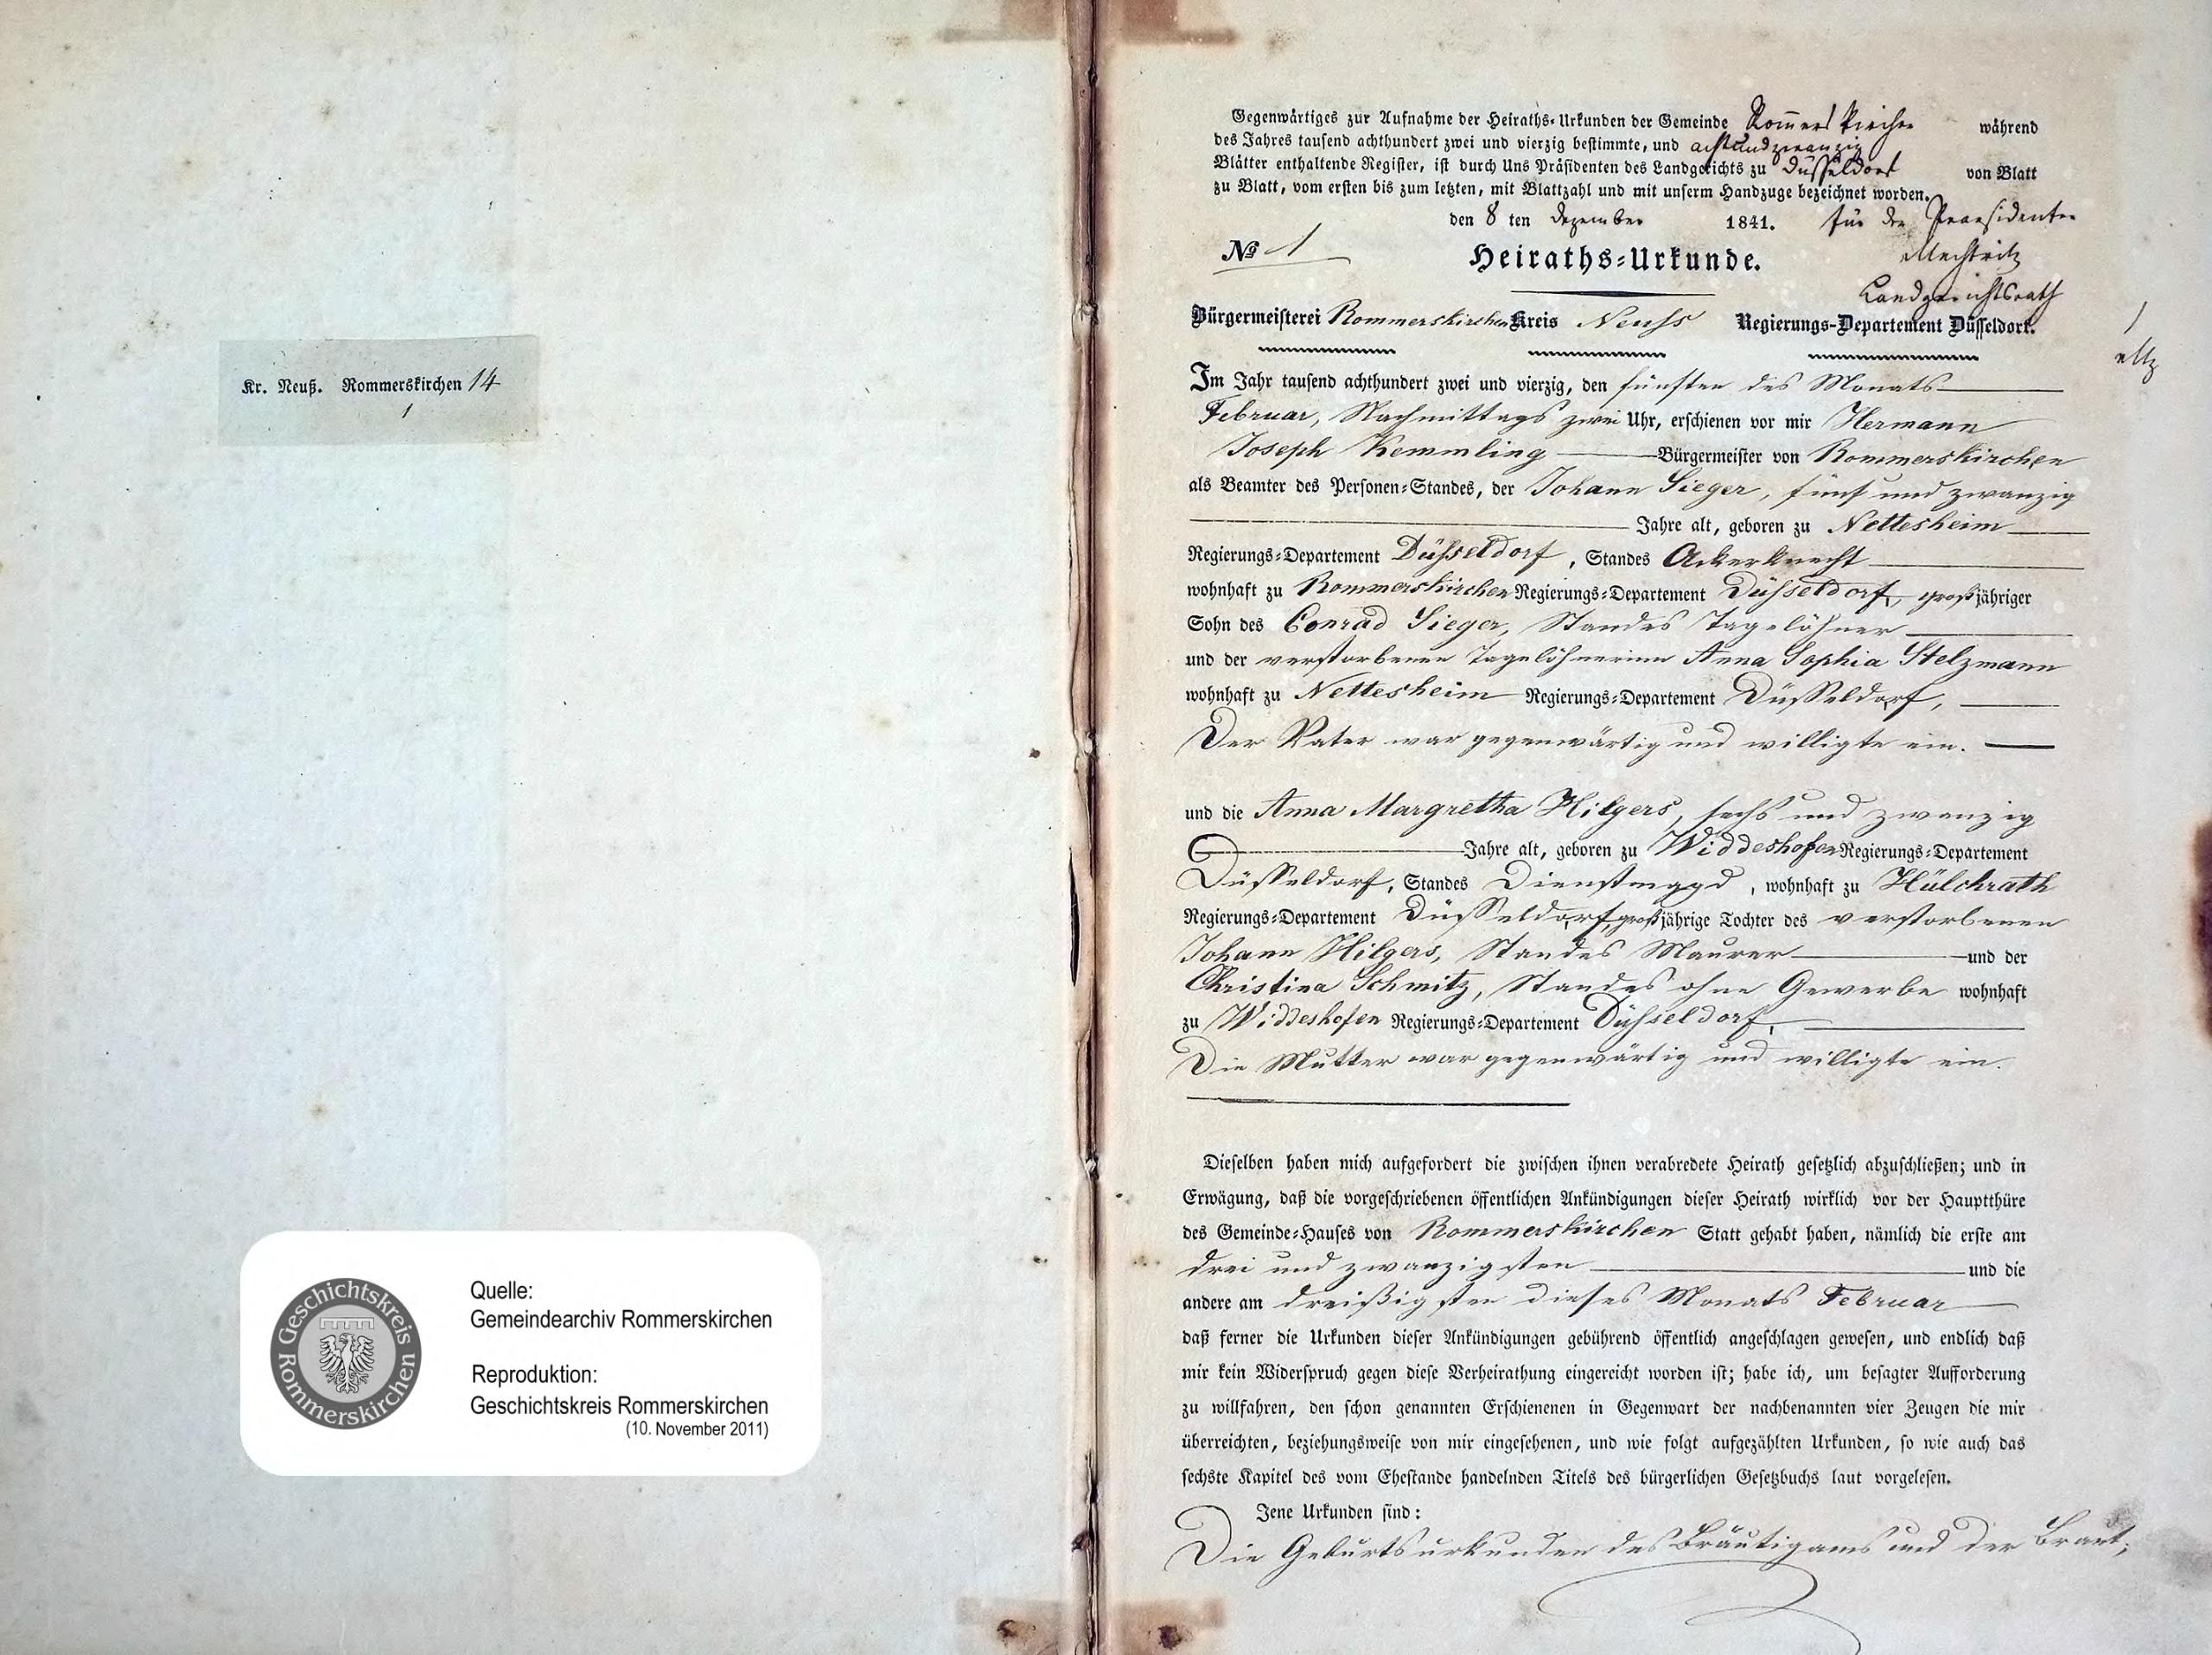 Kr. Neuß. Rommerskirchen 14
1
Geschichtskreis Rommerskirchen
Quelle:
Gemeindearchiv Rommerskirchen
Reproduktion:
Geschichtskreis Rommerskirchen
(10. November 2011)
Gegenwärtiges zur Aufnahme der Heiraths-Urkunden der Gemeinde Rom̅erskirchen während
des Jahres tausend achthundert zwei und vierzig bestimmte, und achtundzwanzig
Blätter enthaltende Register, ist durch Uns Präsidenten des Landgerichts zu Düsseldorf von Blatt
zu Blatt, vom ersten bis zum letzten, mit Blattzahl und mit unserm Handzuge bezeichnet worden.
den 8 ten Dezember 1841. Für den Praesidenten
Landgerichtsrath
No 1
Heiraths-Urkunde.
Bürgermeisterei Rommerskirchen Kreis Neuss Regierungs-Departement Düsseldorf.
1
Im Jahr tausend achthundert zwei und vierzig, den fünften des Monats
Februar, Nachmittags zwei Uhr, erschienen vor mir Hermann
Joseph Kemmling Bürgermeister von Rommerskirchen
als Beamter des Personen-Standes, der Johann Sieger, fünf und zwanzig
Jahre alt, geboren zu Nettesheim
Regierungs-Departement Düsseldorf, Standes Ackerknecht
wohnhaft zu Rommerskirchen Regierungs-Departement Düsseldorf, großjähriger
Sohn des Conrad Sieger, Standes Tagelöhner
und der verstorbenen Tagelöhnerinn Anna Sophia Stelzmann
wohnhaft zu Nettesheim Regierungs-Departement Düsseldorf,
Der Vater war gegenwärtig und willigte ein.
und die Anna Margretha Hilgers, sechs und zwanzig
Jahre alt, geboren zu Widdeshofen Regierungs-Departement
Düsseldorf, Standes Dienstmagd, wohnhaft zu Hülchrath
Regierungs-Departement Düsseldorf, großjährige Tochter des verstorbenen
Johann Hilgers, Standes Maurer und der
Christina Schmitz, Standes ohne Gewerbe wohnhaft
zu Widdeshofen Regierungs-Departement Düsseldorf,
Die Mutter war gegenwärtig und willigte ein.
Dieselben haben mich aufgefordert die zwischen ihnen verabredete Heirath gesetzlich abzuschließen; und in
Erwägung, daß die vorgeschriebenen öffentlichen Ankündigungen dieser Heirath wirklich vor der Hauptthüre
des Gemeinde-Hauses von Rommerskirchen Statt gehabt haben, nämlich die erste am
drei und zwanzigsten und die
andere am dreißigsten dieses Monats Februar
daß ferner die Urkunden dieser Ankündigungen gebührend öffentlich angeschlagen gewesen, und endlich daß
mir kein Widerspruch gegen diese Verheirathung eingereicht worden ist; habe ich, um besagter Aufforderung
zu willfahren, den schon genannten Erschienenen in Gegenwart der nachbenannten vier Zeugen die mir
überreichten, beziehungsweise von mir eingesehenen, und wie folgt aufgezählten Urkunden, so wie auch das
sechste Kapitel des vom Ehestande handelnden Titels des bürgerlichen Gesetzbuchs laut vorgelesen.
Jene Urkunden sind:
Die Geburtsurkunden des Bräutigams und der Braut;